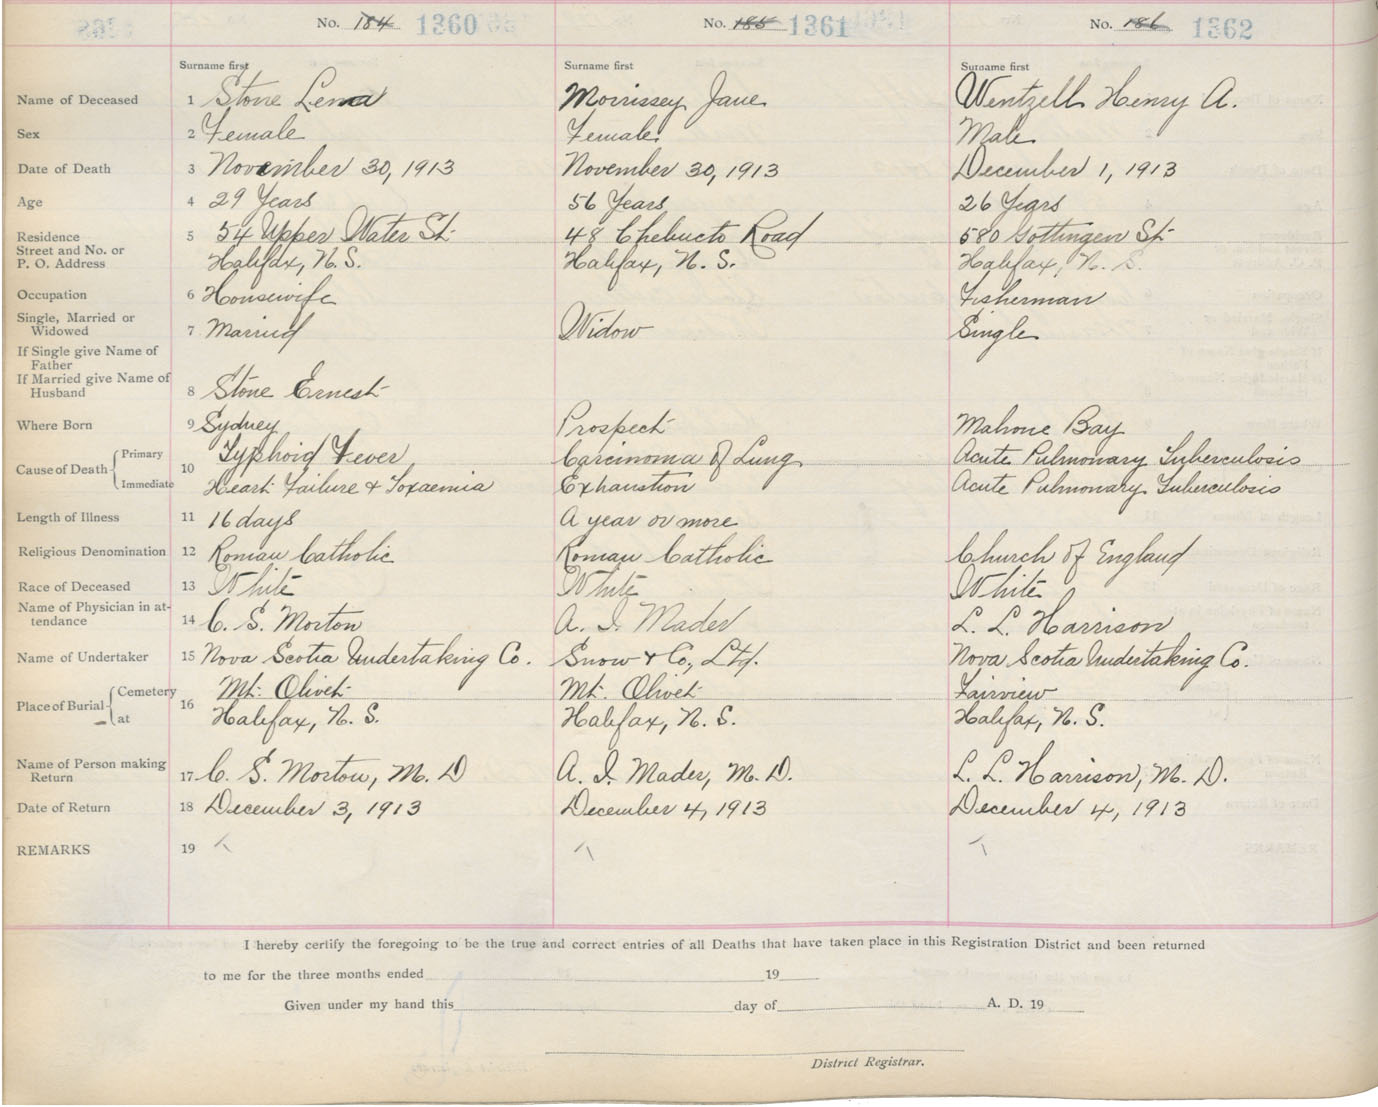 No. 184 1360 No. 185 1361 No. 186 1362
Surname first Surname first Surname first
Name of Deceased 1 Stone Lena Morrissey Jane Wentzell Henry A.
Sex 2 Female Female Male
Date of Death 3 November 30, 1913 November 30, 1913 December 1, 1913
Age 4 29 Years 56 Years 26 Years
Residence 5 54 Upper Water St. 48 Chebucto Road 580 Gottingen St.
Street and No. or
P. O. Address Halifax, N. S. Halifax, N. S. Halifax, N. S.
Occupation 6 Housewife Fisherman
Single, Married or
Widowed 7 Married Widow Single
If Single give Name of
Father
If Married give Name of
Husband 8 Stone Ernest
Where Born 9 Sydney Prospect Mahone Bay
Cause of Death Primary 10 Typhoid Fever Carcinoma of Lung Acute Pulmonary Tuberculosis
Immediate Heart Failure & Toxaemia Exhaustion Acute Pulmonary Tuberculosis
Length of Illness 11 16 days A year or more
Religious Denomination 12 Roman Catholic Roman Catholic Church of England
Race of Deceased 13 White White White
Name of Physician in at-
tendance 14 C. S. Morton A. I. Mader L. L. Harrison
Name of Undertaker 15 Nova Scotia Undertaking Co. Snow & Co., Ltd. Nova Scotia Undertaking Co.
Place of Burial Cemetery 16 Mt. Olivet Mt. Olivet Fairview
at Halifax, N. S. Halifax, N. S. Halifax, N. S.
Name of Person making
Return 17 C. S. Morton, M. D A. I. Mader, M. D. L. L. Harrison, M. D.
Date of Return 18 December 3, 1913 December 4, 1913 December 4, 1913
REMARKS 19
I hereby certify the foregoing to be the true and correct entries of all Deaths that have taken place in this Registration District and been returned
to me for the three months ended 19
Given under my hand this day of A. D. 19
District Registrar.